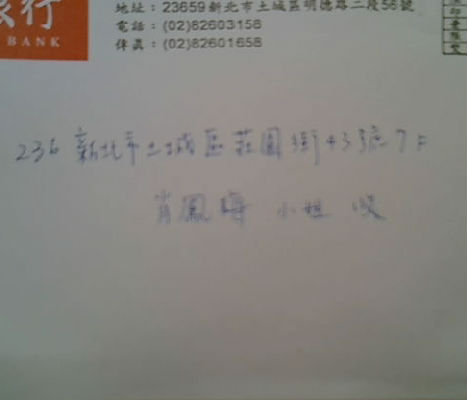 銀行
BANK
地址：23659新北市土城區明德路二段56號
電話：(02)82603158
傳真：(02)82601658
236 新北市土城區莊園街43號7F
肖鳳 小姐 收